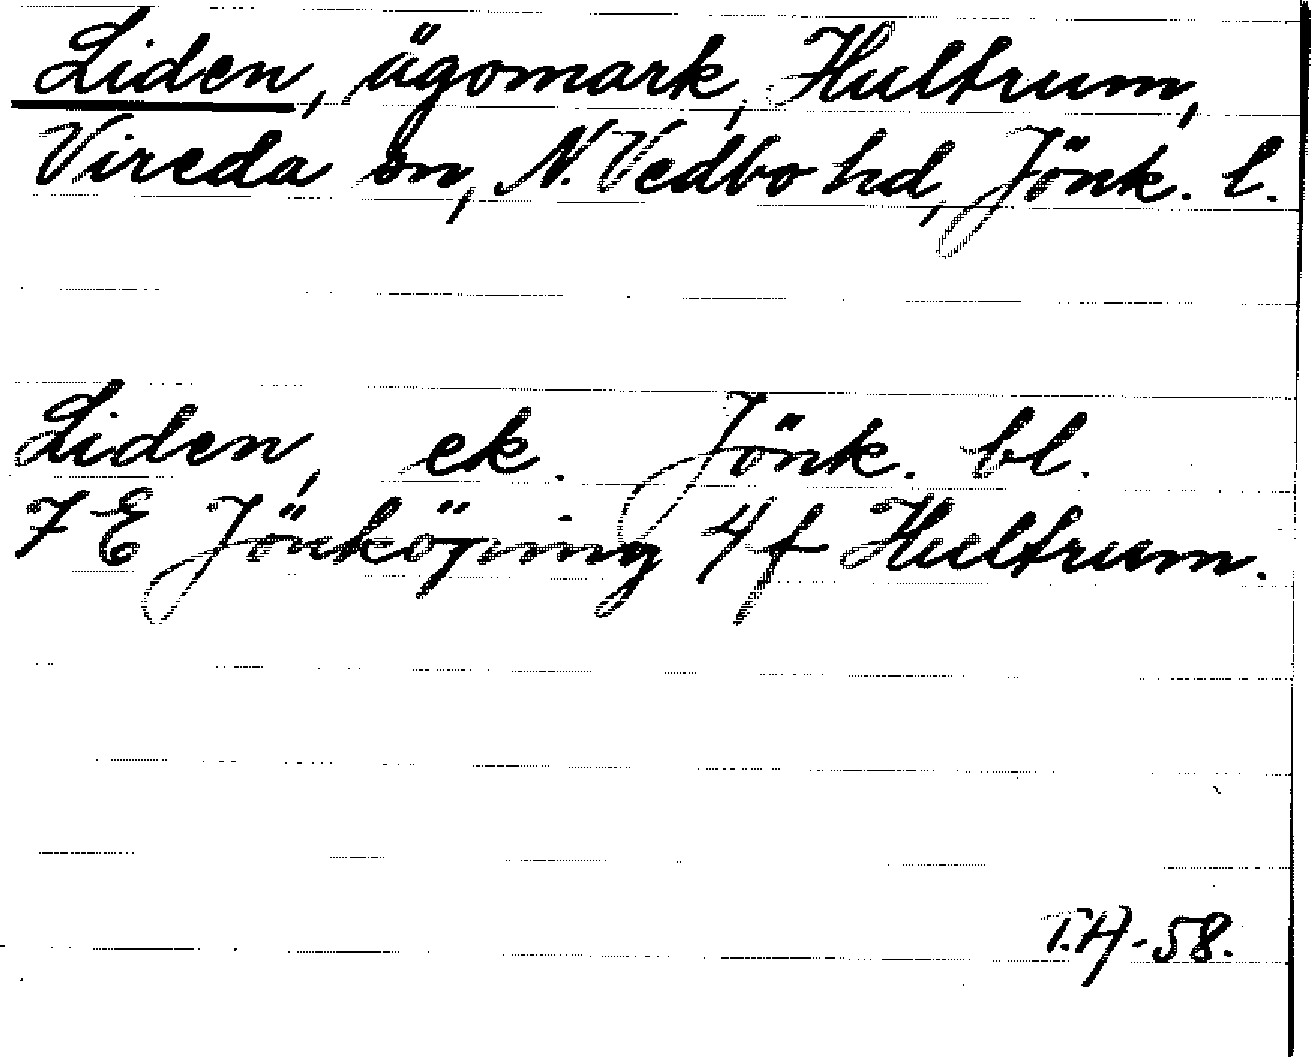 Liden, ägomark, Hultrum,
Vireda sn, N. Vedbo hd, Jönk. l.
Liden, ek. Jönk. bl.
7 E Jönköping 4 f Hultrum.
T.H-58.